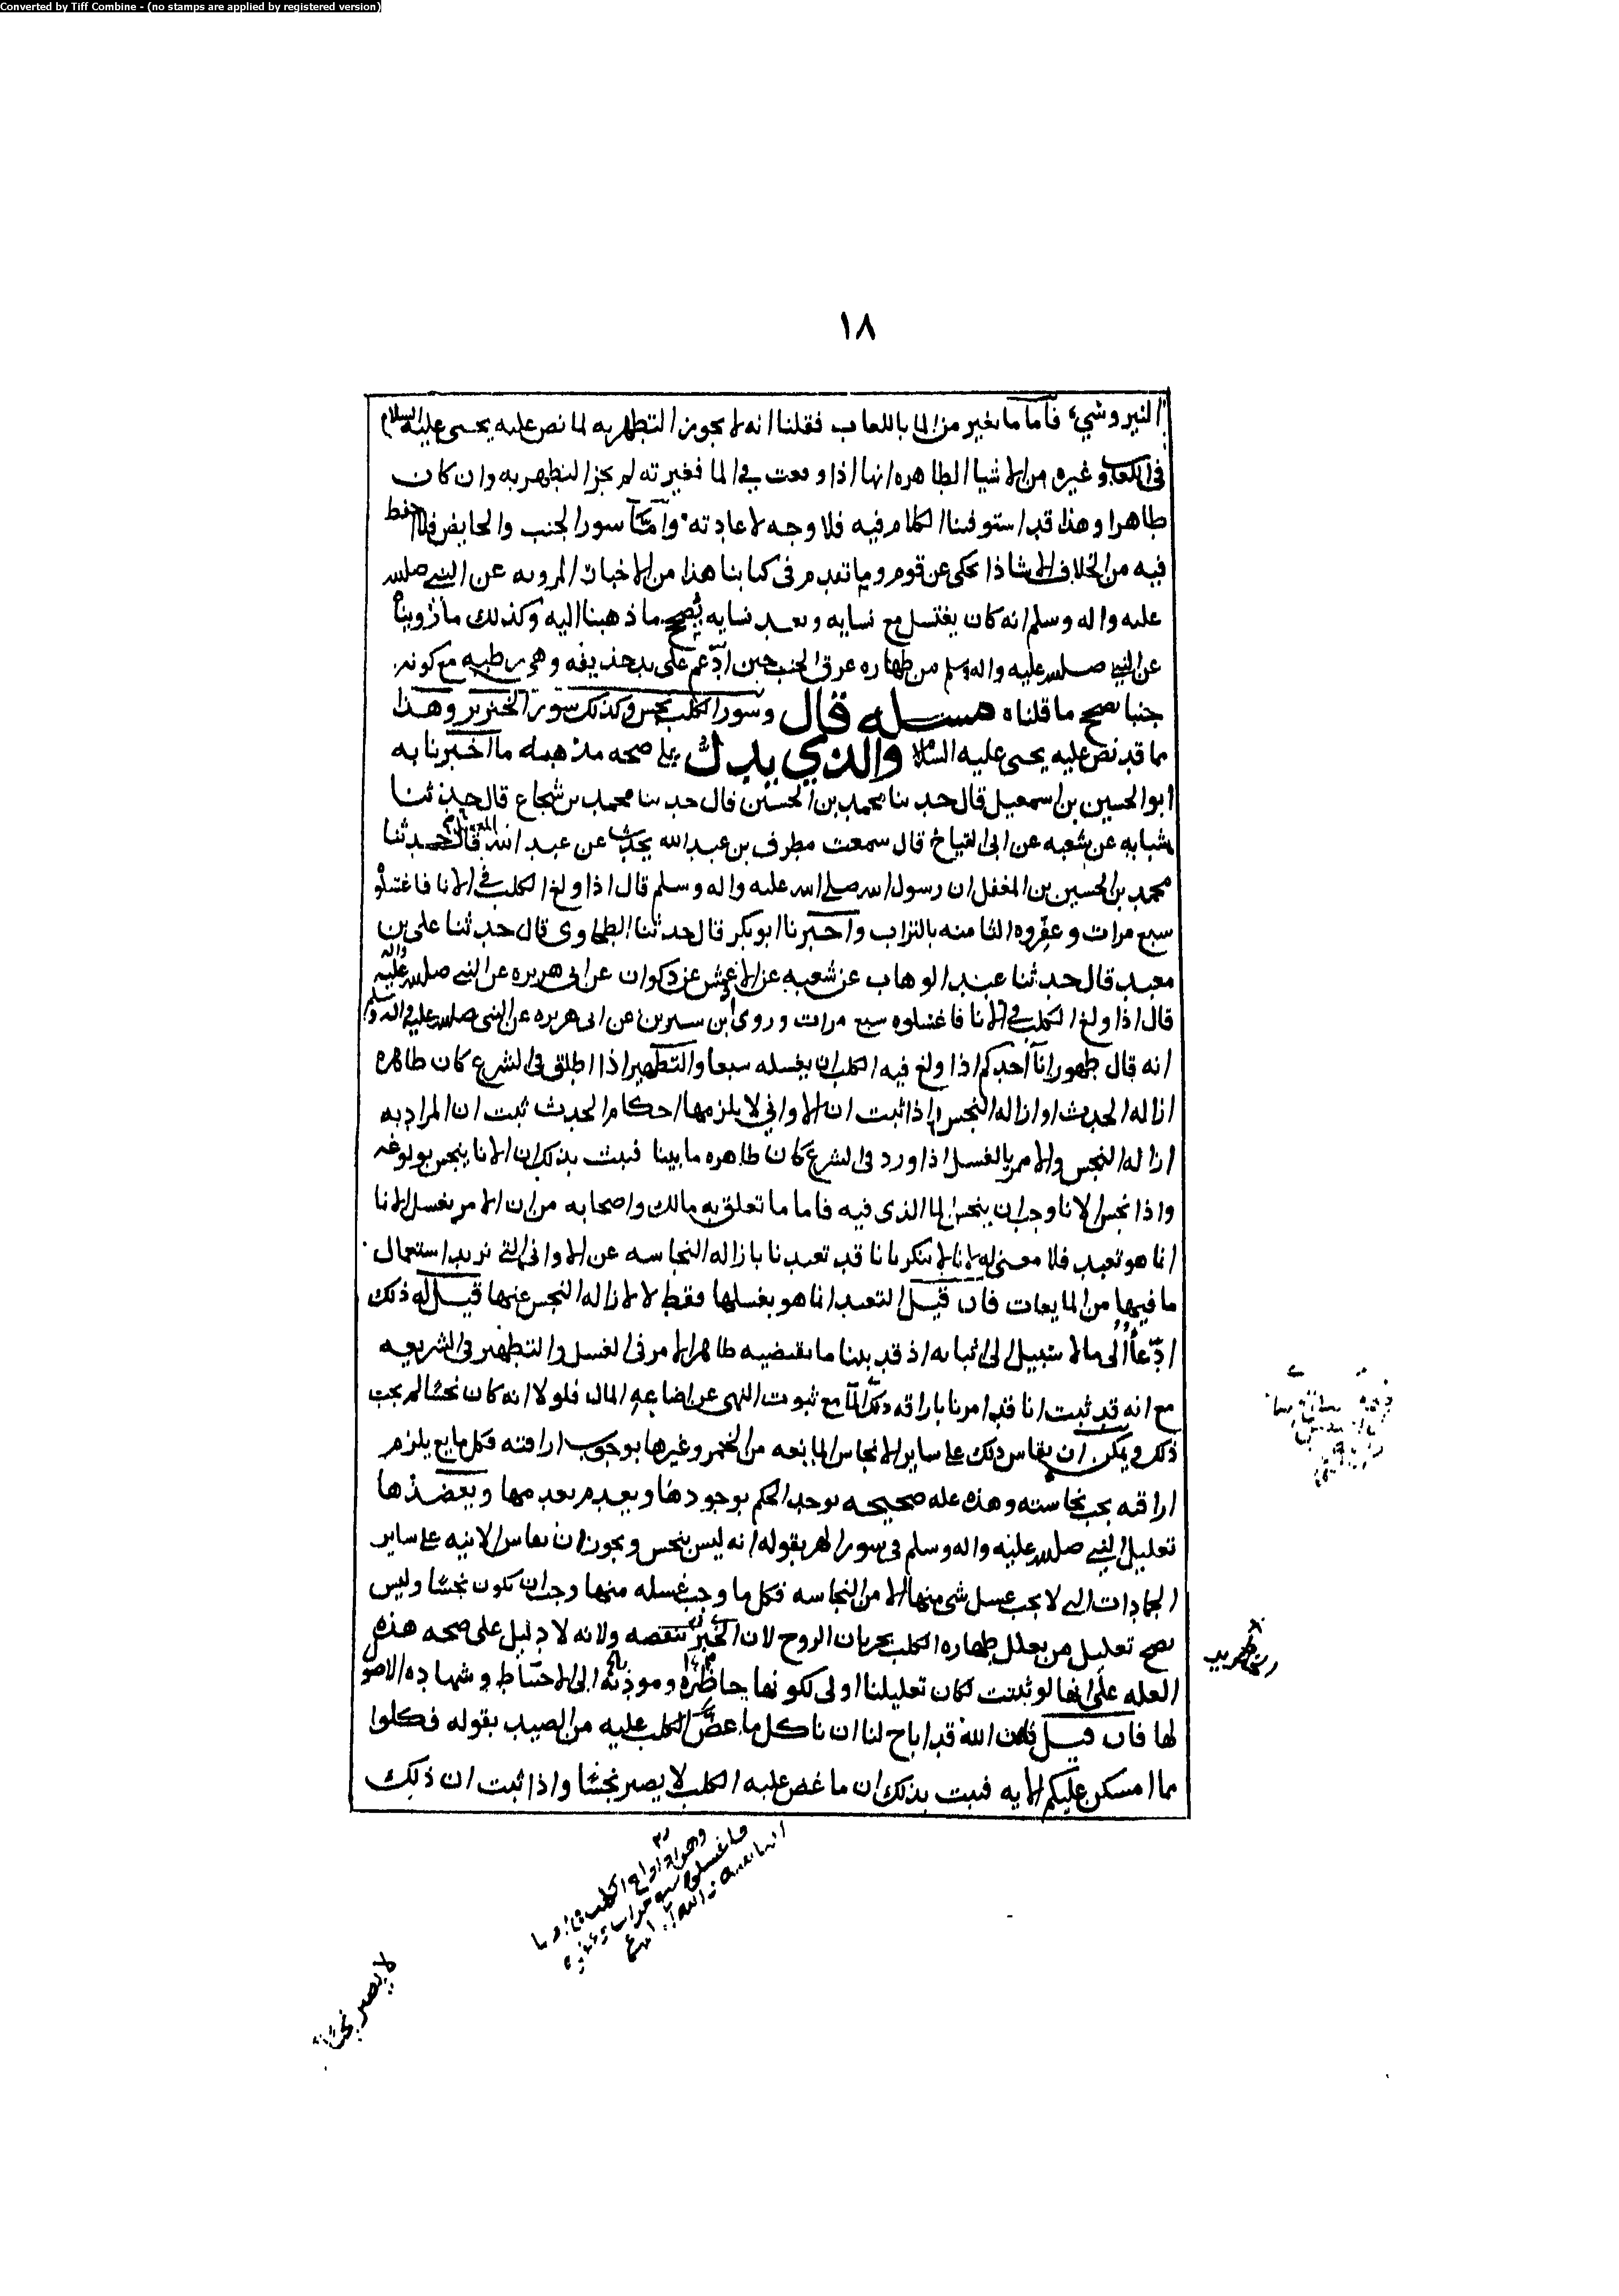 Converted by Tiff Combine - (no stamps are applied by registered version)
١٨
النيروشيء فاما ما تغير من الما باللعاب فقلنا انه لا يجوز التطهر به لما نص عليه يحيى عليه السلام
في اللعاب وغيره من الاشيا الطاهره انها اذا وقعت في الما فغيرته لم يجز التطهر به وان كان
طاهرا وهذا قد استوفينا الكلام فيه فلا وجه لاعادته واما سور الجنب والحايض فلا احفظ
فيه من الخلاف الا شاذا يحكى عن قوم وما تقدم في كتابنا هذا من الاخبار المرويه عن النبي صلى الله
عليه واله وسلم انه كان يغتسل مع نسايه وبعد نسايه يصحح ما ذهبنا اليه وكذلك ما روينا
عن النبي صلى الله عليه واله وسلم من طهاره عرق الجنب حين ادعم على يد حذيفه وهي رطبه مع كونه
جنبا يصحح ما قلناه مسله قال وسور الكلب نجس وكذلك سور الخنزير وهذا
مما قد نص عليه يحيى عليه السلام والذي يدل على صحه مذهبه ما اخبرنا به
ابو الحسين بن اسمعيل قال حدثنا محمد بن الحسين قال حدثنا محمد بن شجاع قال حدثنا
شبابه عن شعبه عن ابي التياح قال سمعت مطرف بن عبد الله يحدث عن عبد الله قال حدثنا
محمد بن الحسين بن المغفل ان رسول الله صلى الله عليه واله وسلم قال اذا ولغ الكلب في الانا فاغسلوه
سبع مرات وعفروه الثامنه بالتراب واخبرنا ابو بكر قال حدثنا الطحاوي قال حدثنا علي بن
معبد قال حدثنا عبد الوهاب عن شعبه عن الاعمش عن ذكوان عن ابي هريره عن النبي صلى الله عليه واله
قال اذا ولغ الكلب في الانا فاغسلوه سبع مرات وروى ابن سيرين عن ابي هريره عن النبي صلى الله عليه واله وسلم
انه قال طهور انا احدكم اذا ولغ فيه الكلب ان يغسله سبعا والتطهير اذا اطلق في الشرع كان ظاهره
ازاله الحدث او ازاله النجس واذا ثبت ان الاواني لا يلزمها احكام الحدث ثبت ان المراد به
ازاله النجس والامر بالغسل اذا ورد في الشرع كان ظاهره ما بينا فثبت بذلك ان الانا ينجس بولوغه
واذا نجس الانا وجب ان ينجس الما الذي فيه فاما ما تعلق به مالك واصحابه من ان الامر بغسل الانا
انما هو تعبد فلا معنى له لانا لا ننكر بانا قد تعبدنا بازاله النجاسه عن الاواني التي نريد استعمال
ما فيها من المايعات فان قيل التعبد انما هو بغسلها فقط لا لازاله النجس عنها قيل له ذلك
ادعا الى ما لا سبيل الى اثباته اذ قد بينا ما يقتضيه ظاهر الامر في الغسل والتطهير في الشريعه
مع انه قد ثبت انا قد امرنا باراقه ذلك الما مع ثبوت النهي عن اضاعه المال فلولا انه كان نجسا لم يجب
ذلك ويمكن ان يقاس ذلك على ساير الانجاس المايعه من الخمر وغيرها بوجوب اراقته فكل مايع يلزم
اراقته يجب نجاسته وهذه عله صحيحه يوجد الحكم بوجودها ويعدم بعدمها ويعضدها
تعليل النبي صلى الله عليه واله وسلم في سور الهر بقوله انه ليس بنجس ويجوز ان يقاس الانيه على ساير
الجمادات التي لا يجب غسل شي منها الا من النجاسه فكل ما وجب غسله منها وجب ان يكون نجسا وليس
يصح تعليل من يعلل طهاره الكلب بجريان الروح لان الخنزير ينقضه ولانه لا دليل على صحه هذه
العله على انها لو ثبتت لكان تعليلنا اولى لكونها حاظره وموذنه بالاحتياط وشهاده الاصول
لها فان قيل فان الله قد اباح لنا ان ناكل ما عض الكلب عليه من الصيد بقوله فكلوا
مما امسكن عليكم الايه فثبت بذلك ان ما عض عليه الكلب لا يصير نجسا واذا ثبت ان ذلك
لا يصير نجسا